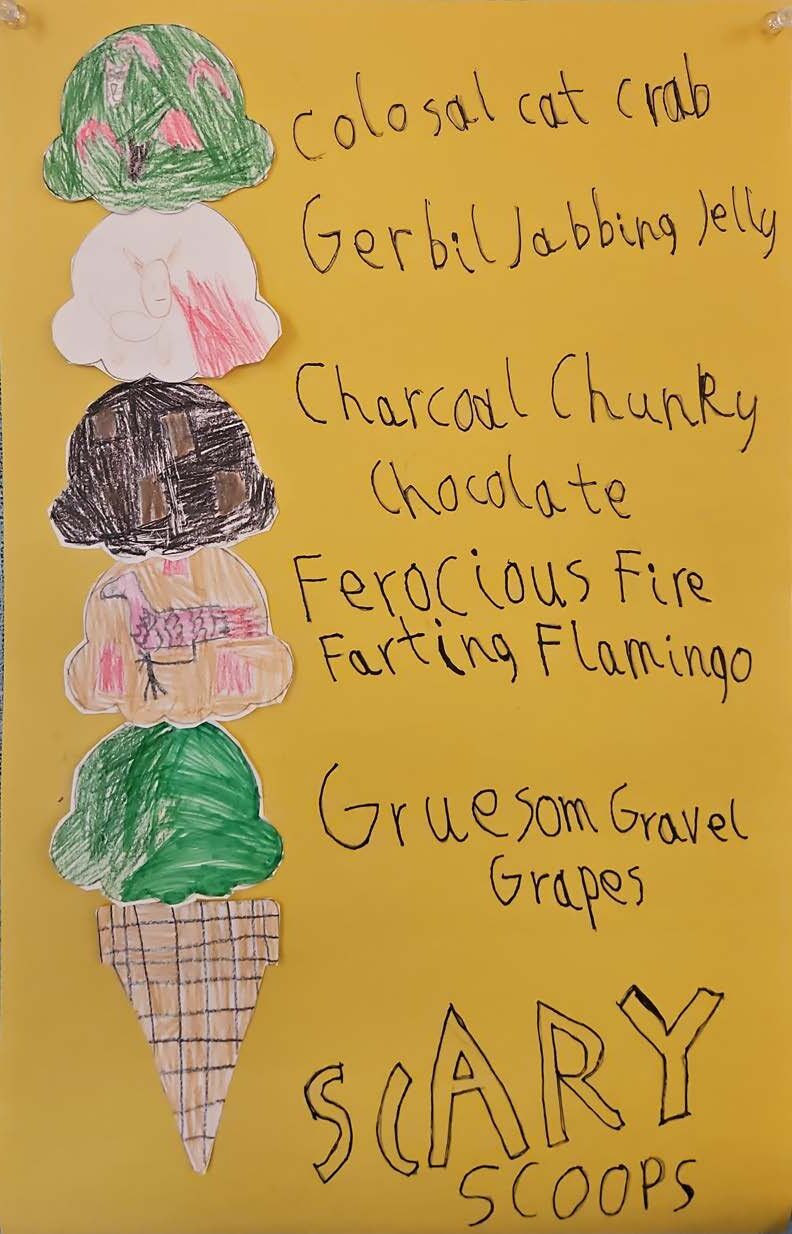 Colosal cat crab
Gerbil Jabbing Jelly
Charcoal Chunky
Chocolate
Ferocious Fire
Farting Flamingo
Gruesom Gravel
Grapes
SCARY
SCOOPS